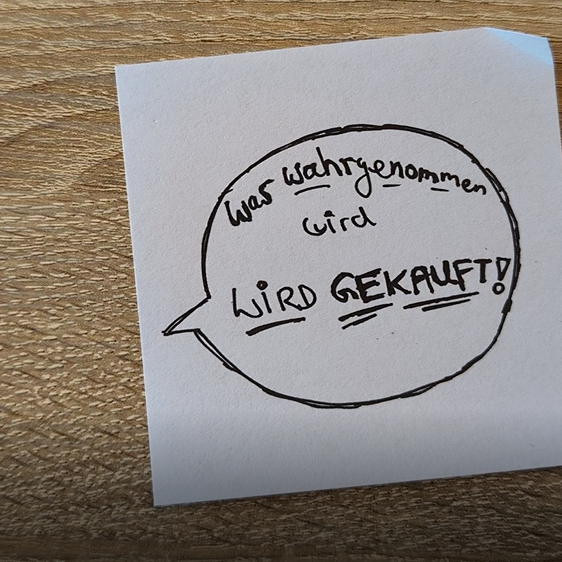 Was wahrgenommen
wird
WiRD GEKAUFT!